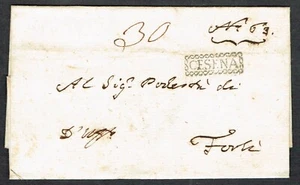 30 N. 63.
CESENA
Al Sig. Podestà di
D'Uff.
Forlì